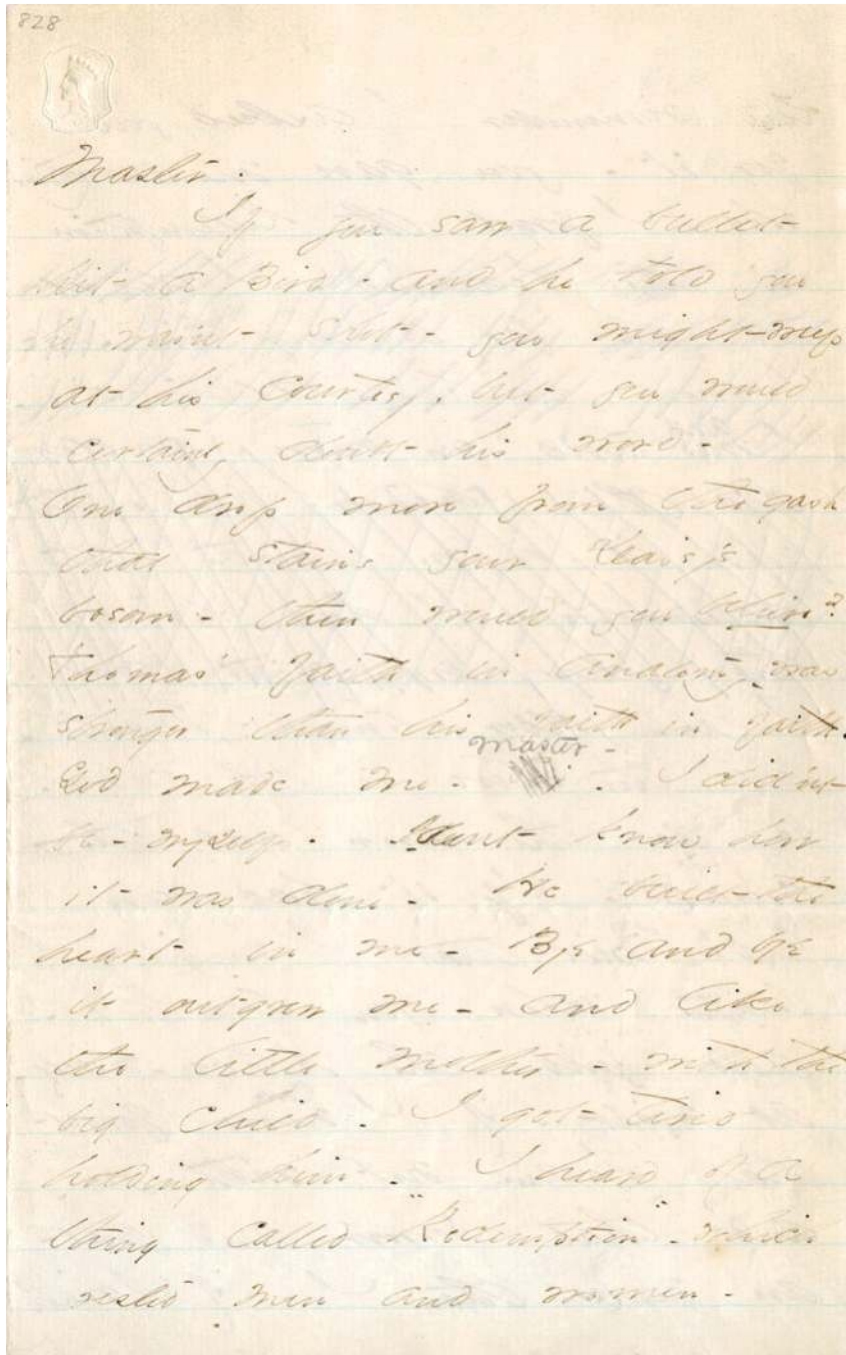 828
Master.
If you saw a bullet
hit a Bird - and he told you
he was'nt shot - you might weep
at his courtesy, but you would
certainly doubt his word -
One drop more from the gash
that stains your Daisy's
bosom - then would you believe?
Thomas' faith in Anatomy, was
stronger than his faith in faith.
God made me - Master - I did'nt
be - myself. I dont know how
it was done - He built the
heart in me - Bye and bye
it outgrew me - and like
the little mother - with the
big child - I got tired
holding him - I heard of a
thing called "Redemption" - which
rested men and women -